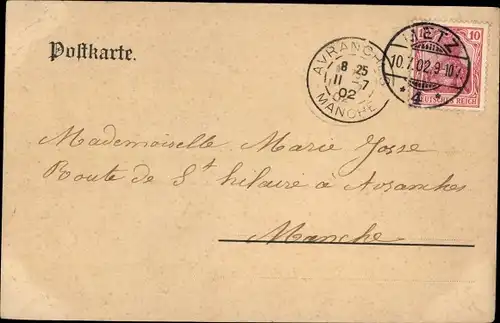 Postkarte.
AVRANCHES
8 25
11 7
02
MANCHE
METZ
10.7.02.9-10
* 4 *
10
DEUTSCHES REICH
Mademoiselle Marie Josse
Route de St hilaire à Avranches
Manche